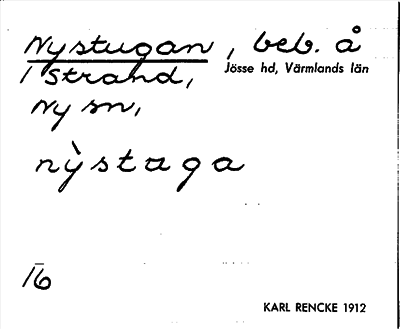 Nystugan, beb. å
Jösse hd, Värmlands län
1 Strand,
Ny sn,
nỳstaga
16
KARL RENCKE 1912